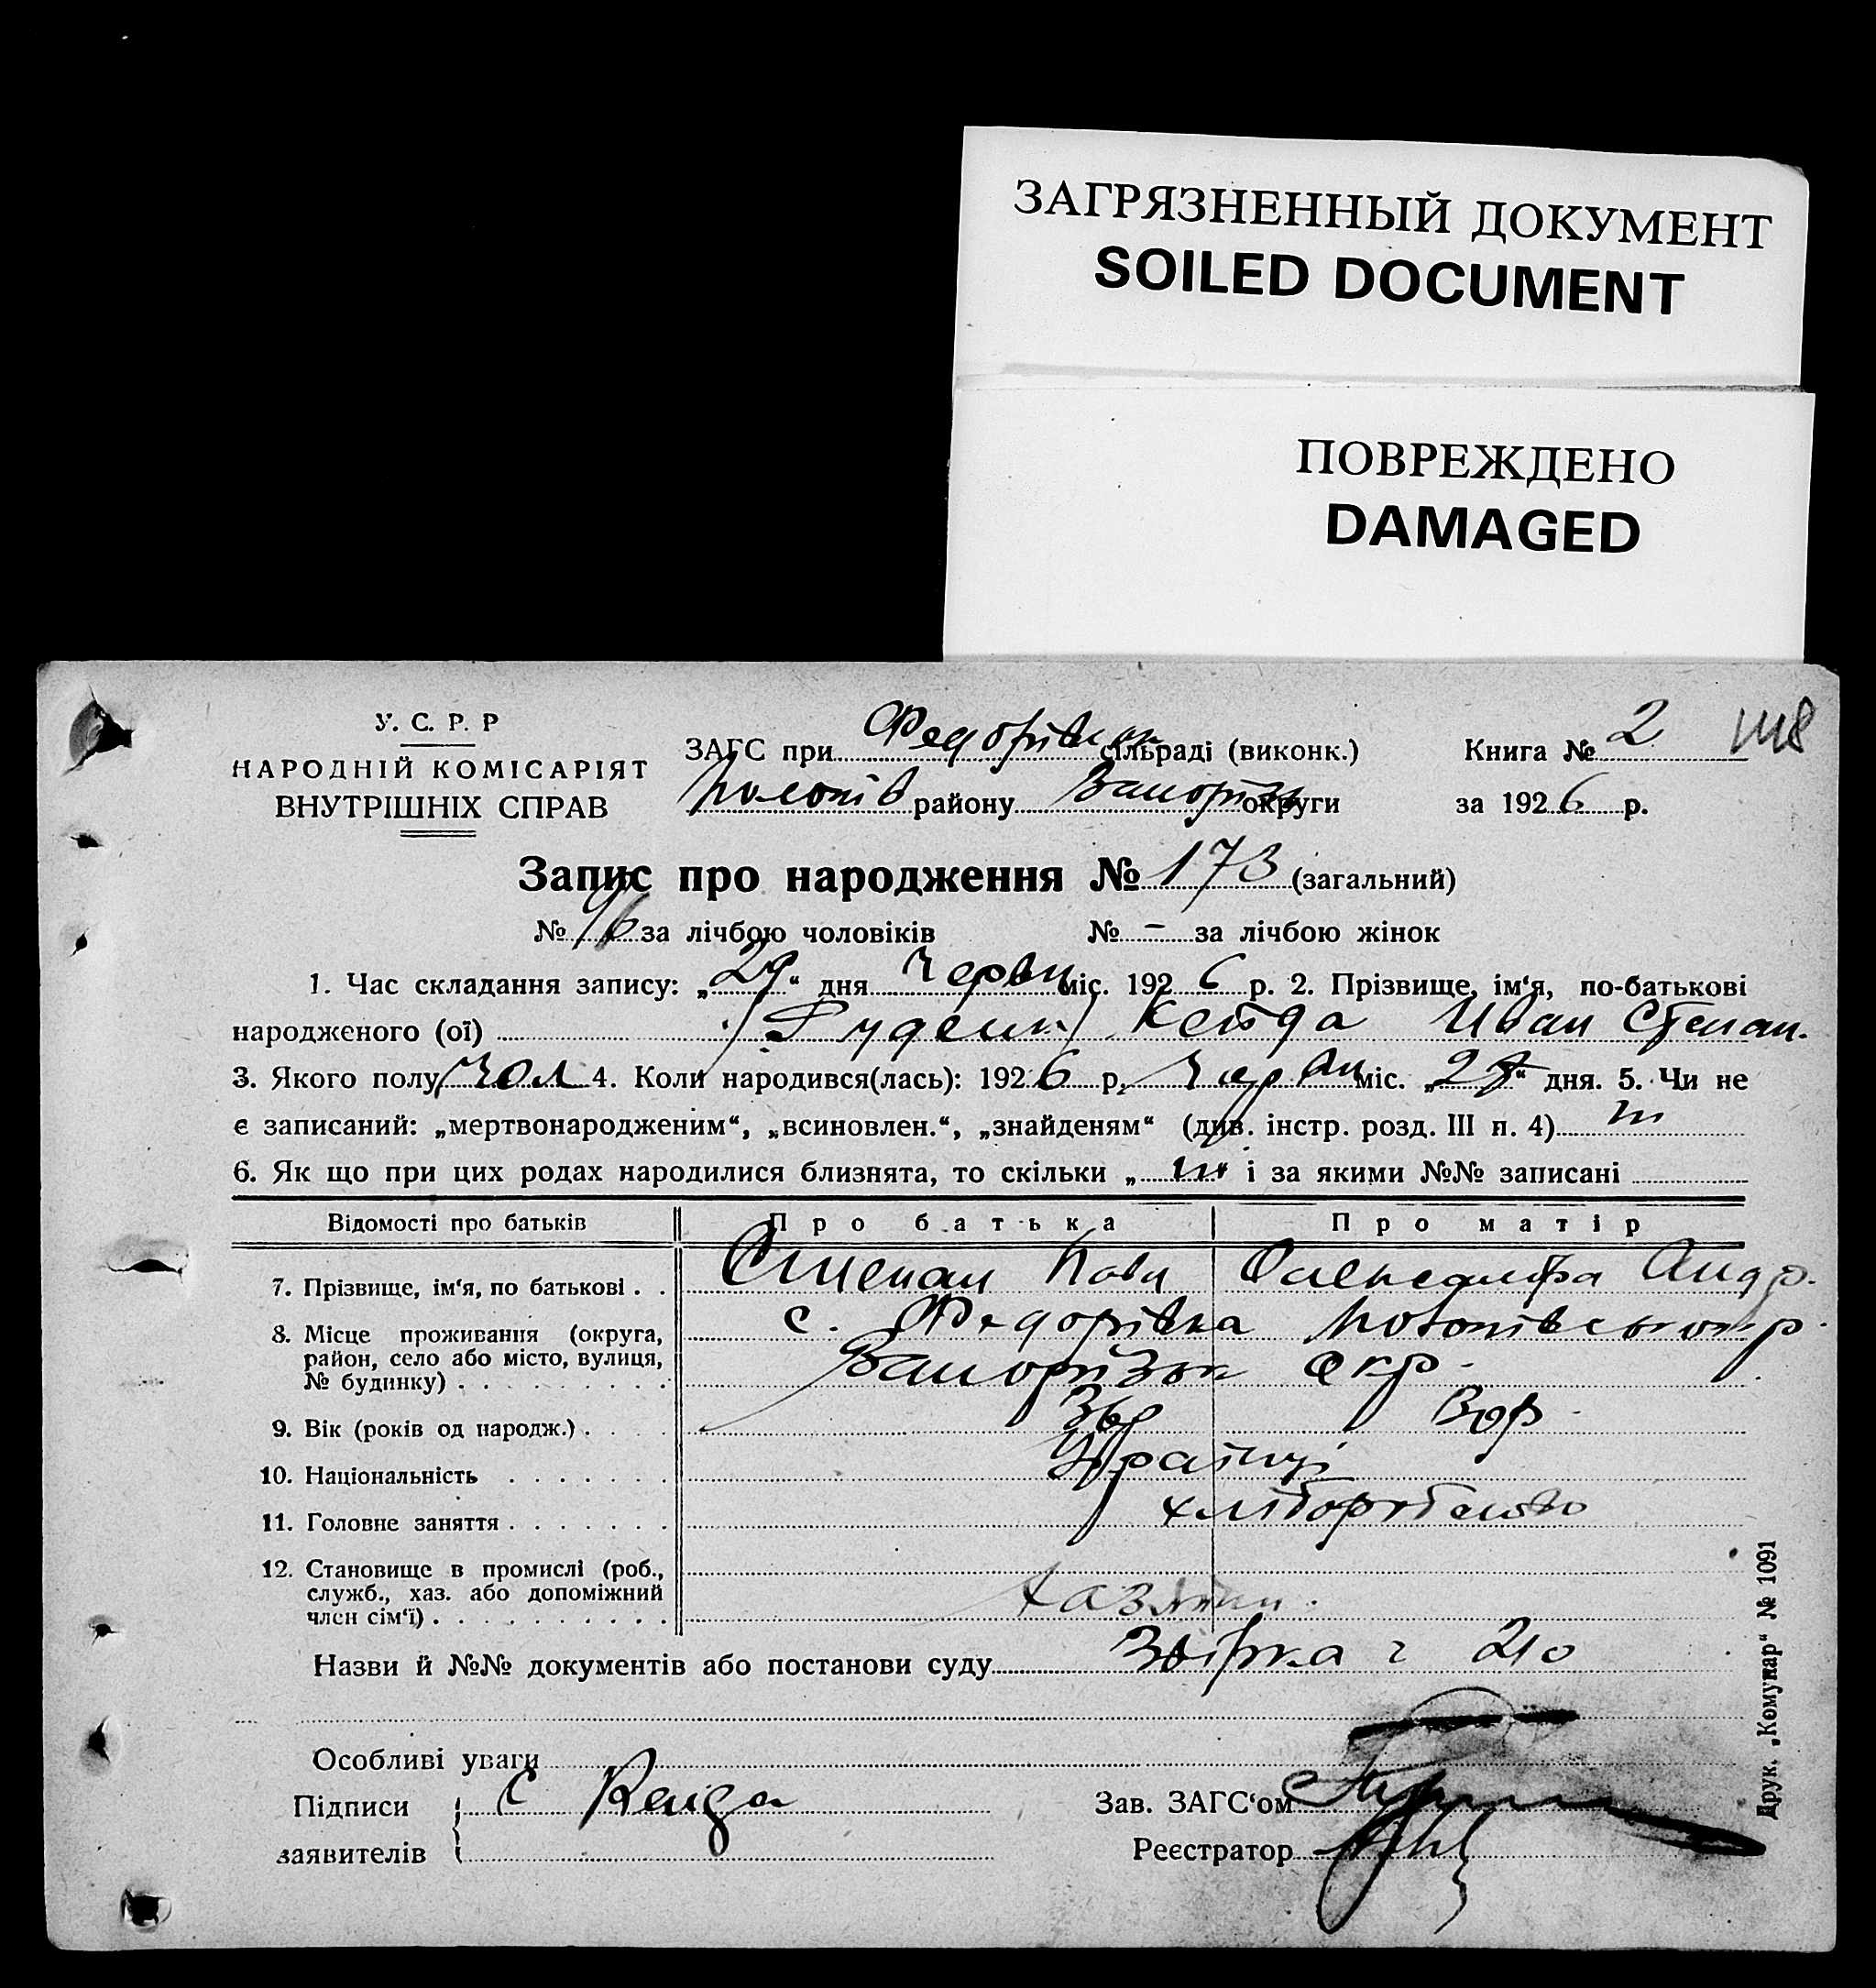 ЗАГРЯЗНЕННЫЙ ДОКУМЕНТ
SOILED DOCUMENT
ПОВРЕЖДЕНО
DAMAGED
У. С. Р. Р
НАРОДНІЙ КОМІСАРІЯТ
ВНУТРІШНІХ СПРАВ
ЗАГС при Федорівськ сільраді (виконк.)
району Запорізь округи
Книга № 2
за 1926 р.
Запис про народження № 173 (загальний)
№ 96 за лічбою чоловіків № - за лічбою жінок
1. Час складання запису: „29“ дня Червн міс. 1926 р. 2. Прізвище, ім‘я, по-батькові
народженого (ої) /Руденк/ Кейда Иван Степан.
3. Якого полу чол 4. Коли народився(лась): 1926 р. Червн міс. „27“ дня. 5. Чи не
є записаний: „мертвонародженим“, „всиновлен.“, „знайденям“ (див. інстр. розд. III п. 4)
6. Як що при цих родах народилися близнята, то скільки „ “ і за якими №№ записані
Відомості про батьків Про батька Про матір
7. Прізвище, ім‘я, по батькові . . Степан Павл Олександра Андр.
8. Місце проживання (округа, район, село або місто, вулиця, № будинку) с. Федорівка
Запорізьк окр.
9. Вік (років од народж.) 36р
10. Національність Україці
11. Головне заняття хліборобство
12. Становище в промислі (роб., служб., хаз. або допоміжний член сім‘ї) Хазяїни.
Назви й №№ документів або постанови суду Звірка ч 210
Особливі уваги
Підписи заявителів С Кейда
Зав. ЗАГС‘ом
Реєстратор
Друк. „Комунар“ № 1091